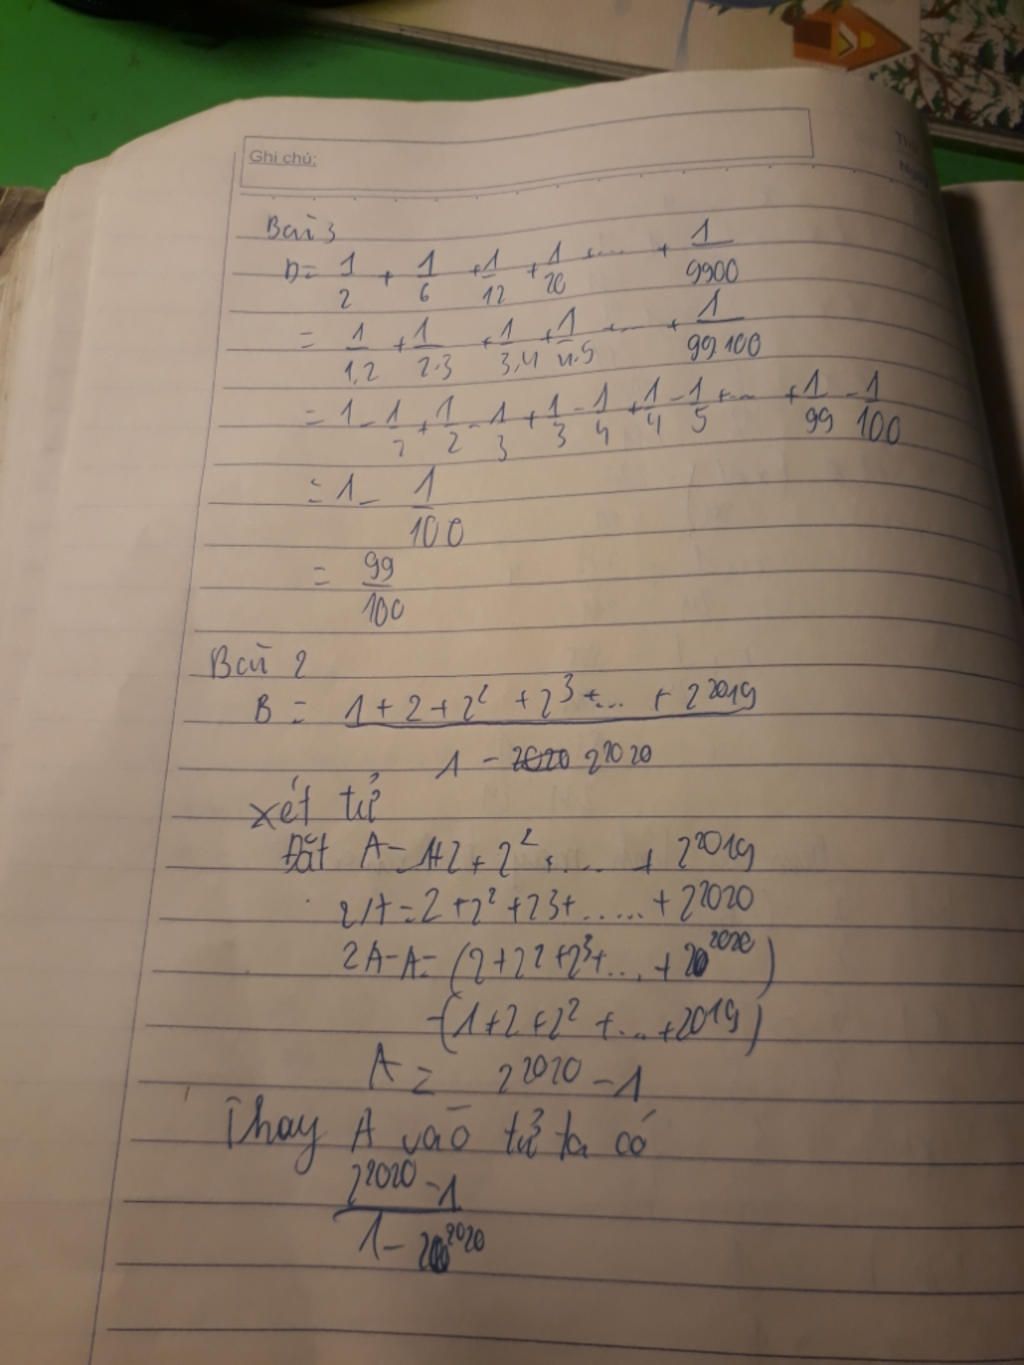 Ghi chú:
Bài 3
D = 1/2 + 1/6 + 1/12 + 1/20 + .... + 1/9900
= 1/1.2 + 1/2.3 + 1/3.4 + 1/4.5 + ... + 1/99.100
= 1 - 1/2 + 1/2 - 1/3 + 1/3 - 1/4 + 1/4 - 1/5 + ... + 1/99 - 1/100
= 1 - 1/100
= 99/100
Bài 2
B = (1 + 2 + 2² + 2³ + ... + 2²⁰¹⁹)/(1 - 2²⁰²⁰)
xét tử
Đặt A = 1+2 + 2² + .... + 2²⁰¹⁹
2A = 2 + 2² + 23 + ...... + 2²⁰²⁰
2A - A = (2 + 2² + 2³ + ... + 2²⁰²⁰)
-(1 + 2 + 2² + ... + 2019)
A = 2²⁰²⁰ - 1
Thay A vào tử ta có
(2²⁰²⁰ - 1)/(1 - 2²⁰²⁰)